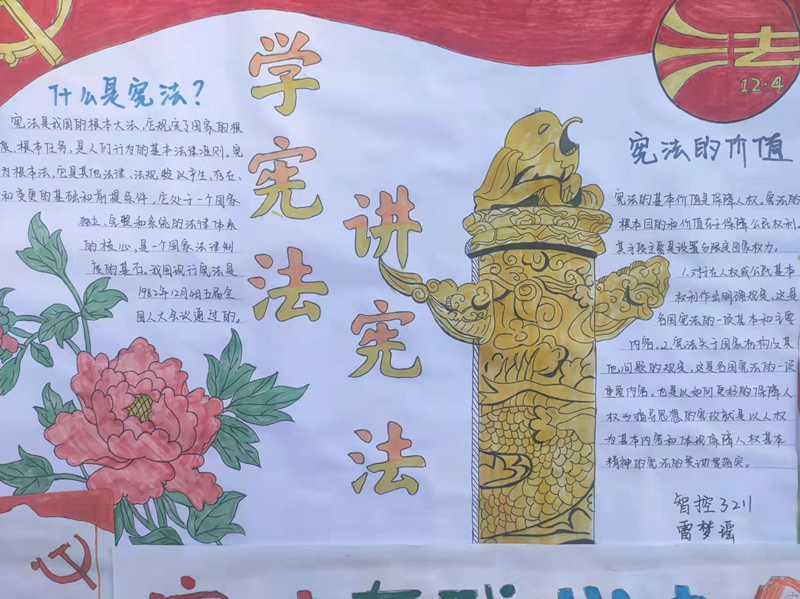 学宪法
讲宪法
法
12·4
什么是宪法?
宪法是我国的根本大法,它规定了国家的根
度、根本任务,是人们行为的基本法律准则。宪
为根本法,它是其他法律、法规赖以产生、存在、
和变更的基础和前提条件,它处于一个国家
独立、完整和系统的法律体系
的核心,是一个国家法律制
度的基石。我国现行宪法是
1982年12月4日五届全
国人大会议通过的。
宪法的价值
宪法的基本价值是保障人权。宪法的
根本目的和价值在于保障公民权利,
其手段主要是设置与限定国家权力。
1.对于人权或公民基本
权利作出明确规定,这是
各国宪法的一项基本和主要
内容。2.宪法关于国家机构及其
他问题的规定,这是各国宪法的一项
重要内容。也是以如何更好的保障人
权为指导思想的宪政就是以人权
为基本内容和体现保障人权基本
精神的宪法的贯彻落实。
智控3211
雷梦谣